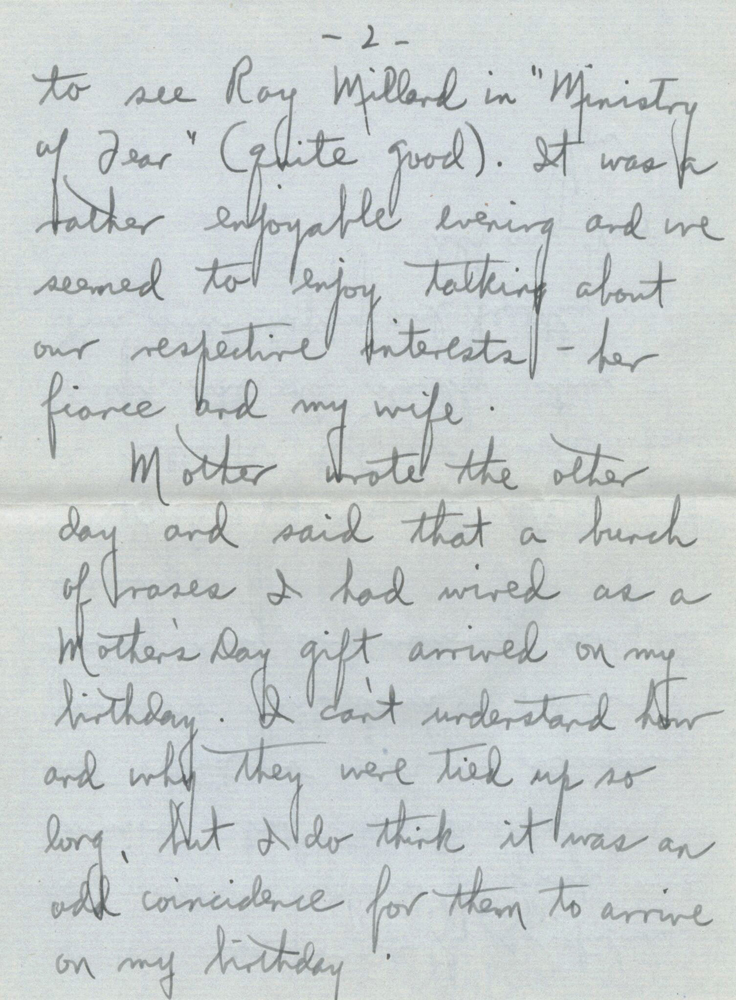 - 2 -
to see Ray Milland in "Ministry
of Fear" (quite good). It was a
rather enjoyable evening and we
seemed to enjoy talking about
our respective interests - her
fiance and my wife.
Mother wrote the other
day and said that a bunch
of roses I had wired as a
Mother's Day gift arrived on my
birthday. I can't understand how
and why they were tied up so
long, but I do think it was an
odd coincidence for them to arrive
on my birthday.